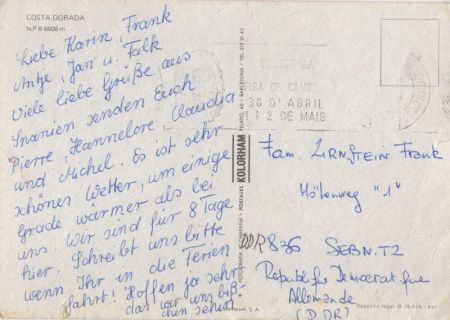 COSTA DORADA
N.º B 6606 m.
Liebe Karin, Frank
Antje, Jan u. Falk
Viele liebe Grüße aus
Spanien senden Euch
Pierre, Hannelore, Claudia
und Michel. Es ist sehr
schönes Wetter, um einige
Grade wärmer als bei
uns. Wir sind für 8 Tage
hier. Schreibt uns bitte
wenn Ihr in die Ferien
fahrt! Hoffen ja sehr
das wir uns biß-
chen sehen
30 D'ABRIL
2 DE MAIG
KOLORHAM
POSTALES
BARCELONA
Fam. ZIRNSTEIN Frank
Höhenweg "1"
DDR 836 SEBNITZ
Republique Democratique
Allemande
(D.D.R)